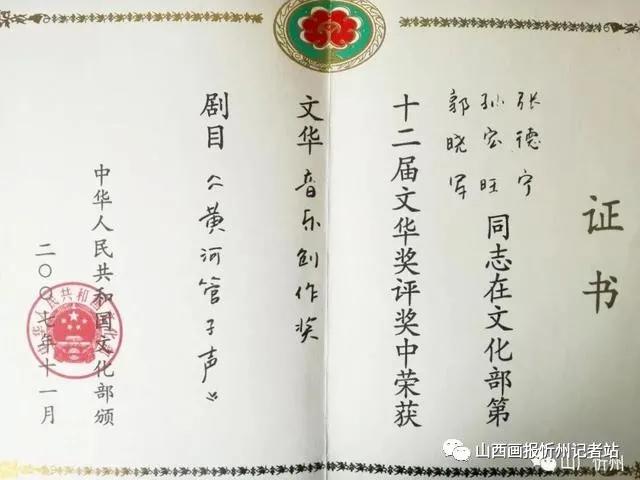 证书
张德宁
孙宏旺
郭晓军
同志在文化部第
十二届文华奖评奖中荣获
文华音乐创作奖
剧目《黄河管子声》
中华人民共和国文化部颁
二〇〇七年十一月
山西画报忻州记者站